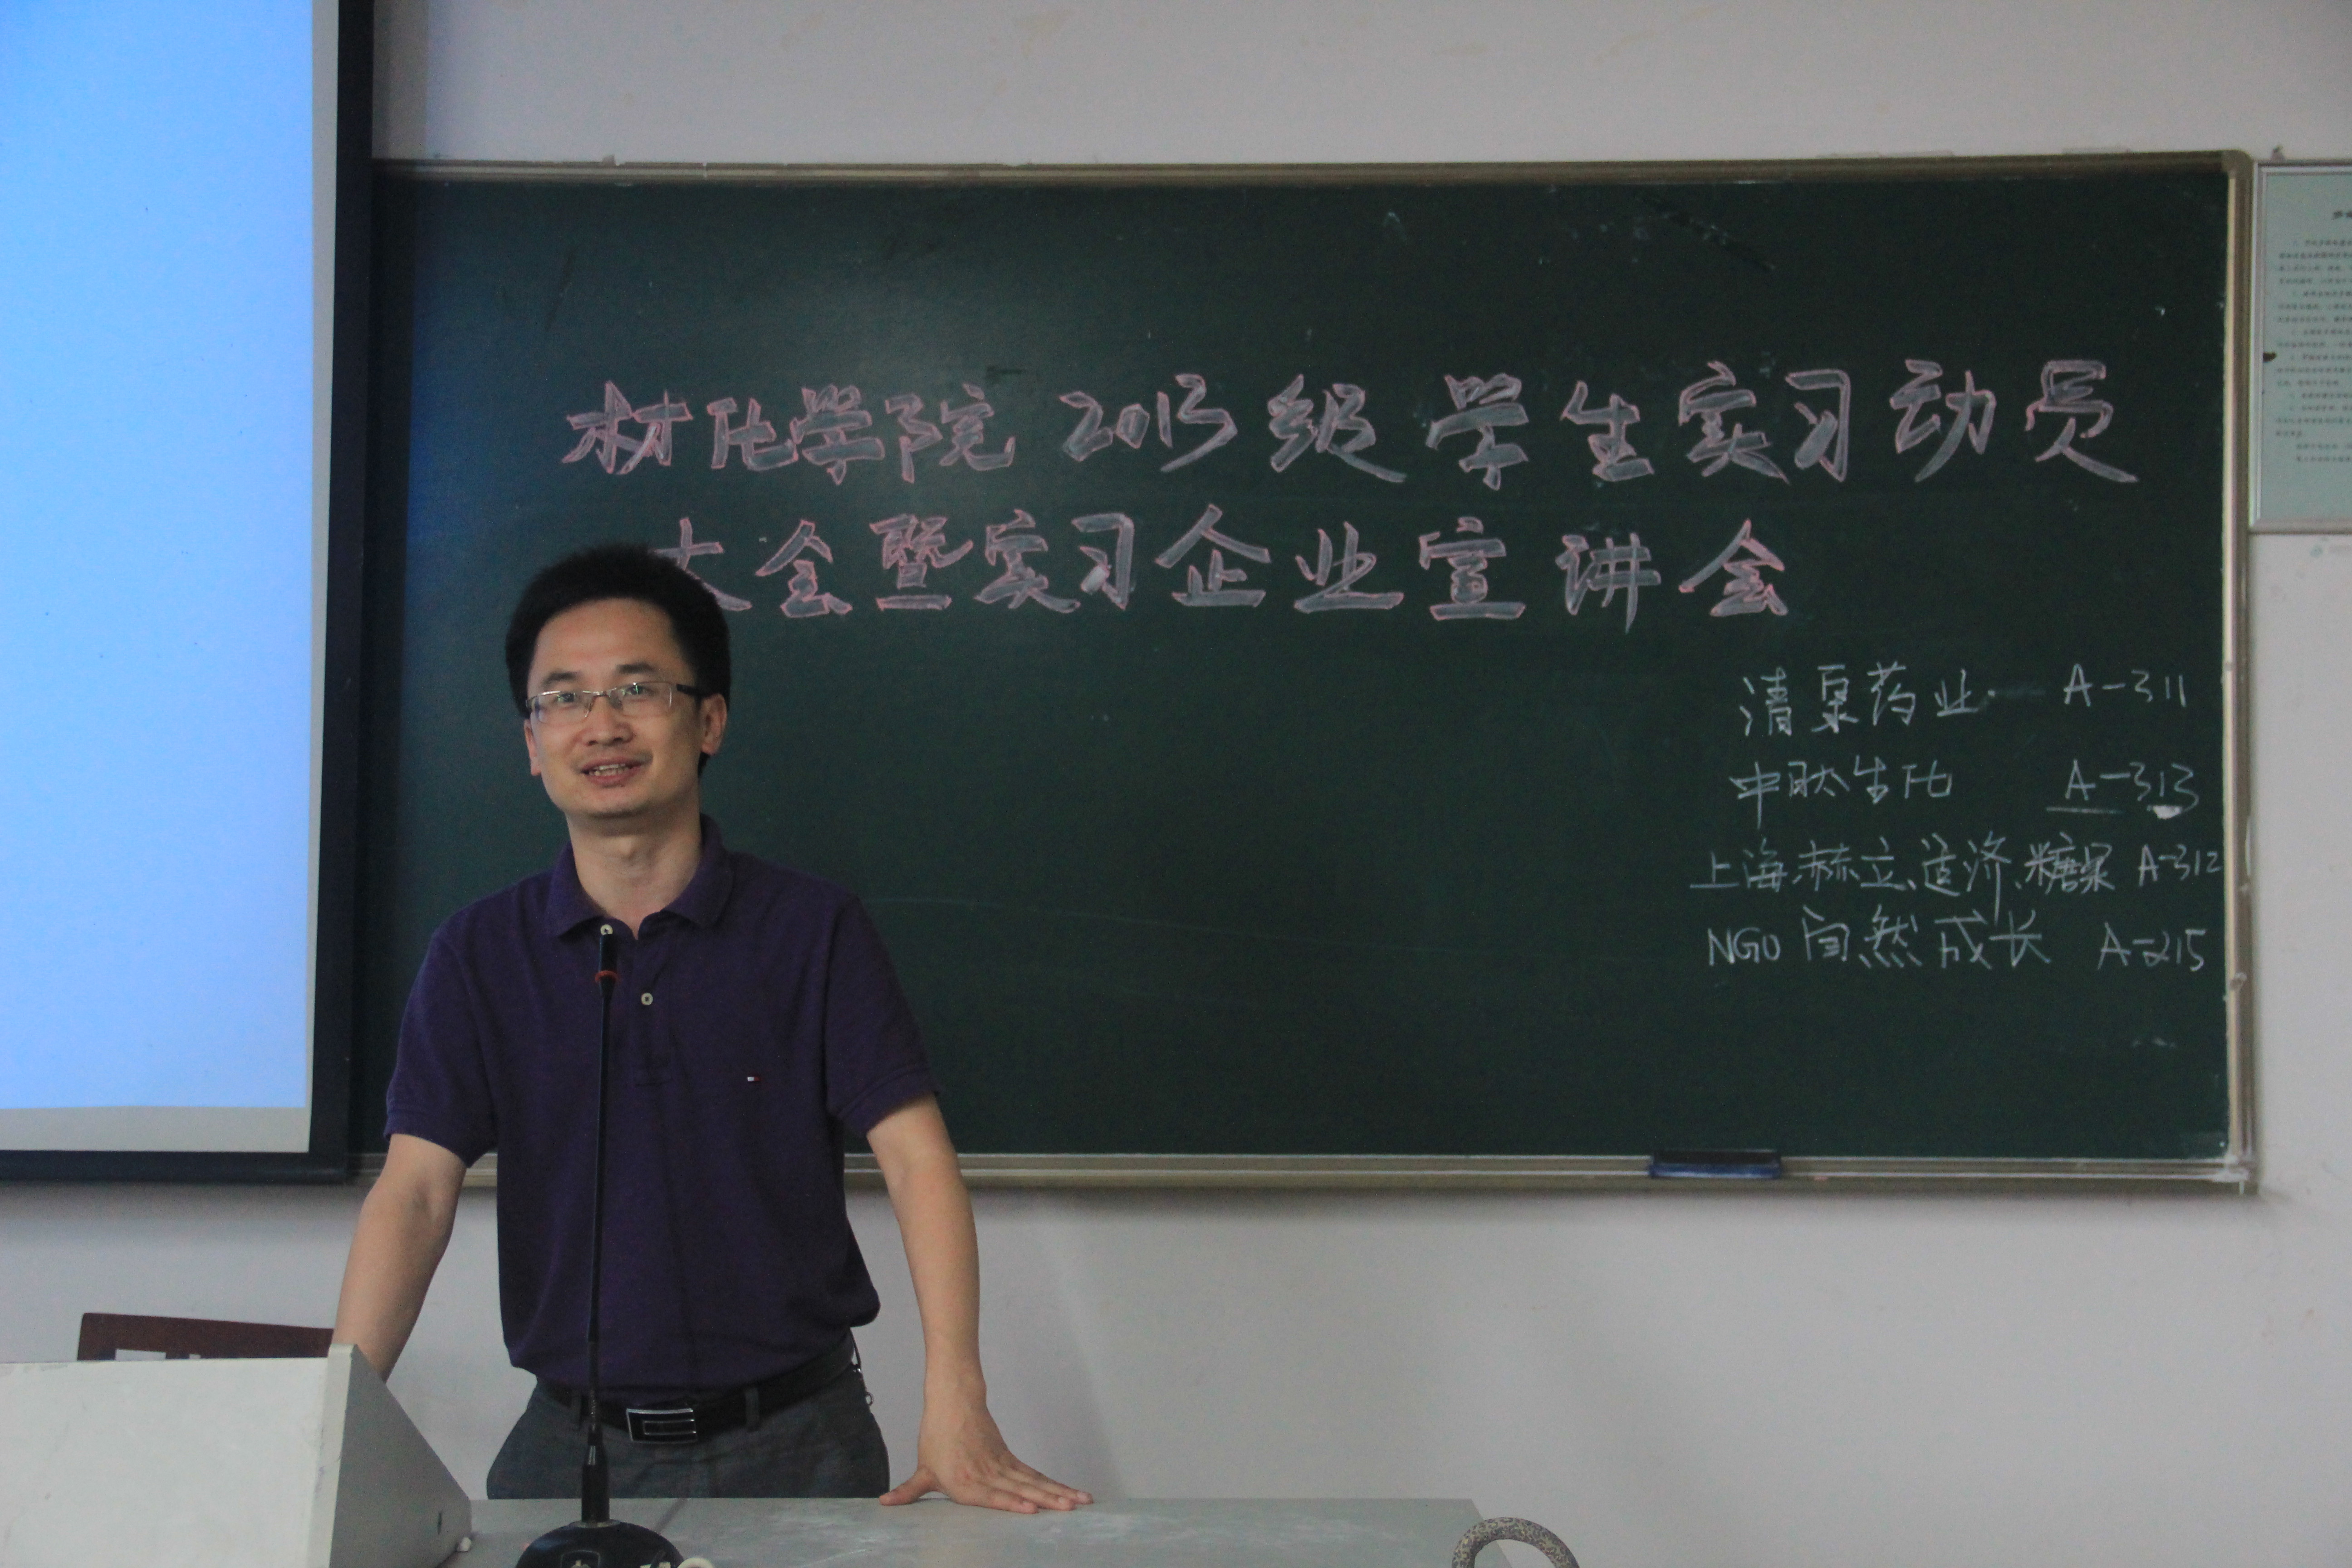 材化学院2013级学生实习动员
大会暨实习企业宣讲会
清泉药业 A-311
中肽生化 A-313
上海赫立、道济、糖果 A-312
NGO 自然成长 A-215